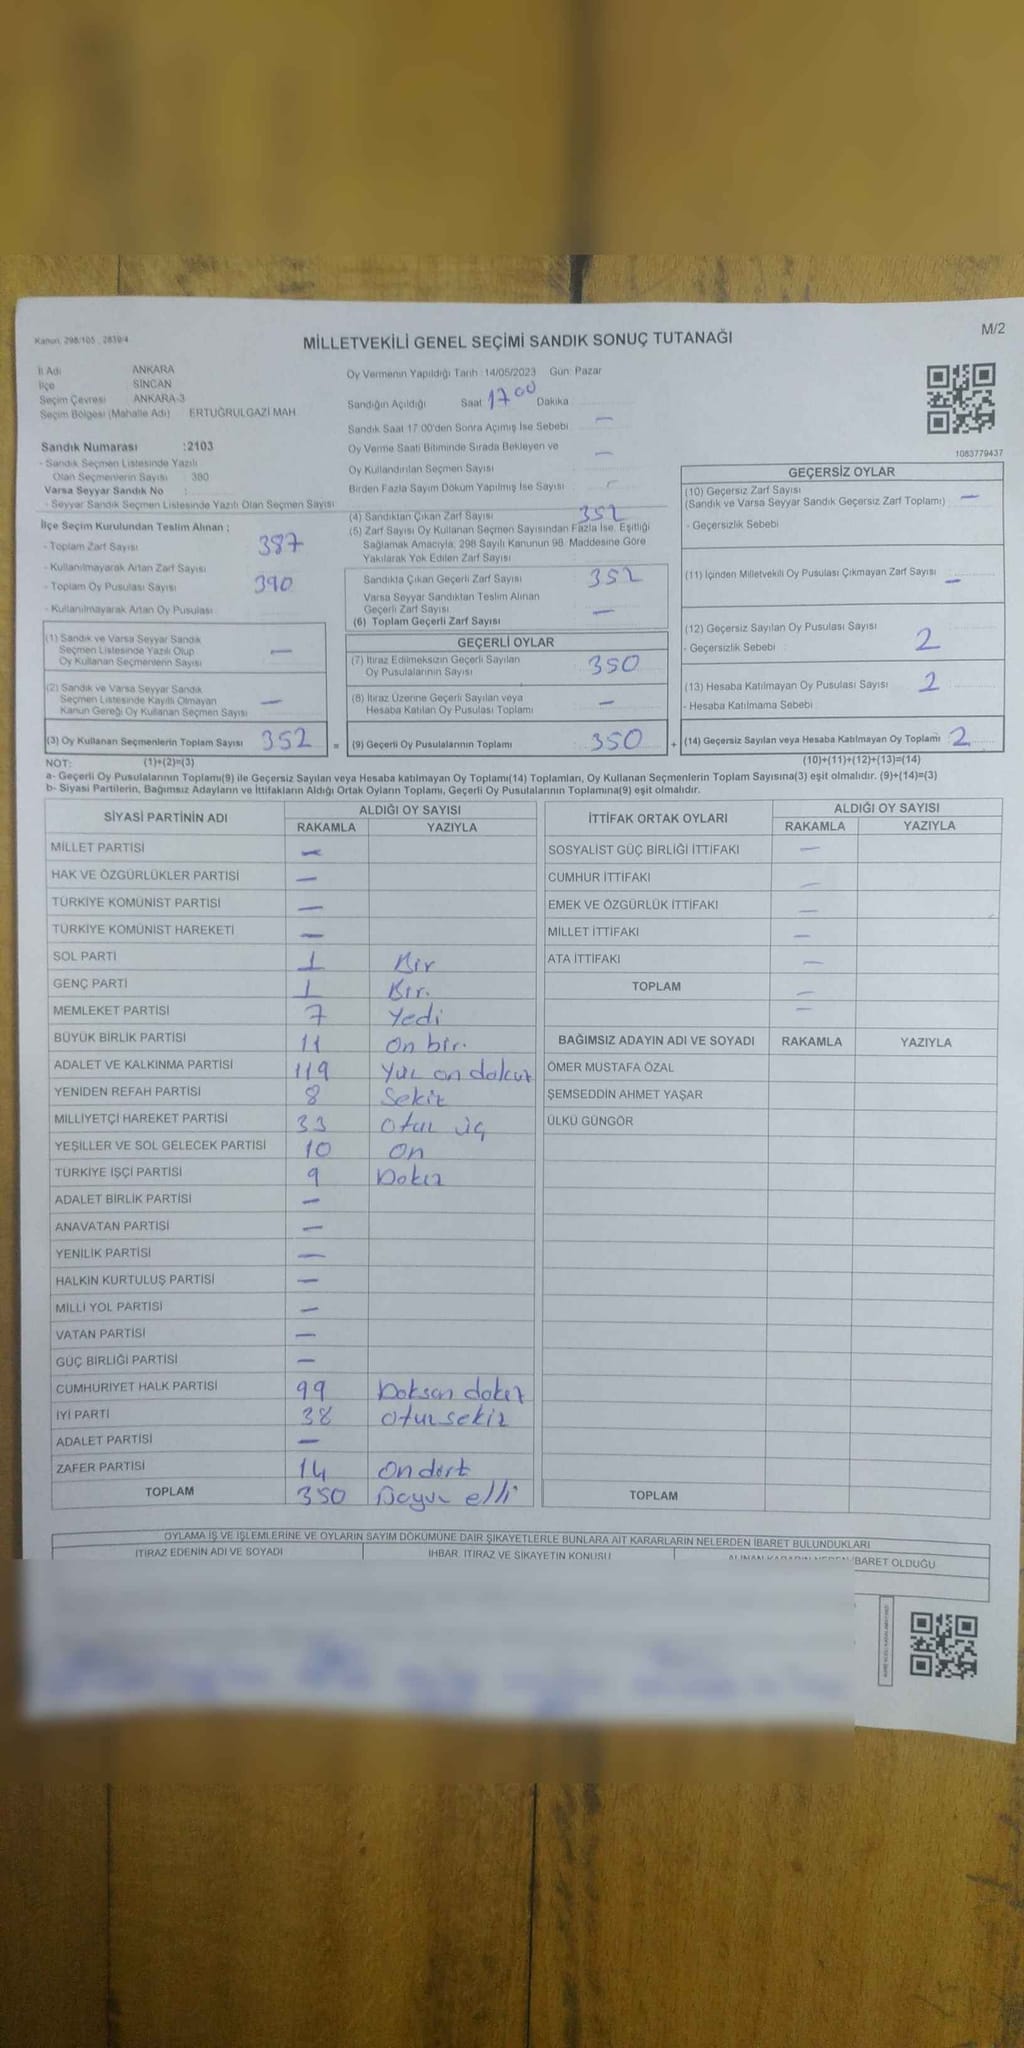 Kanun, 298/105 , 2839/4
MİLLETVEKİLİ GENEL SEÇİMİ SANDIK SONUÇ TUTANAĞI
M/2
İl Adı ANKARA
İlçe SİNCAN
Seçim Çevresi ANKARA-3
Seçim Bölgesi (Mahalle Adı) ERTUĞRULGAZİ MAH.
Sandık Numarası :2103
- Sandık Seçmen Listesinde Yazılı
Olan Seçmenlerin Sayısı : 380
Varsa Seyyar Sandık No :
- Seyyar Sandık Seçmen Listesinde Yazılı Olan Seçmen Sayısı
Oy Vermenin Yapıldığı Tarih :14/05/2023 Gün: Pazar
Sandığın Açıldığı Saat 17 00 Dakika
Sandık Saat 17 00'den Sonra Açımış İse Sebebi —
Oy Verme Saati Bitiminde Sırada Bekleyen ve
Oy Kullandırılan Seçmen Sayısı —
Birden Fazla Sayım Döküm Yapılmış İse Sayısı
1083779437
İlçe Seçim Kurulundan Teslim Alınan ;
- Toplam Zarf Sayısı 387
- Kullanılmayarak Artan Zarf Sayısı
- Toplam Oy Pusulası Sayısı 390
- Kullanılmayarak Artan Oy Pusulası
(1) Sandık ve Varsa Seyyar Sandık
Seçmen Listesinde Yazılı Olup
Oy Kullanan Seçmenlerin Sayısı —
(2) Sandık ve Varsa Seyyar Sandık
Seçmen Listesinde Kayıtlı Olmayan
Kanun Gereği Oy Kullanan Seçmen Sayısı —
(3) Oy Kullanan Seçmenlerin Toplam Sayısı 352
(4) Sandıktan Çıkan Zarf Sayısı 352
(5) Zarf Sayısı Oy Kullanan Seçmen Sayısından Fazla İse, Eşitliği
Sağlamak Amacıyla, 298 Sayılı Kanunun 98. Maddesine Göre
Yakılarak Yok Edilen Zarf Sayısı
Sandıkta Çıkan Geçerli Zarf Sayısı 352
Varsa Seyyar Sandıktan Teslim Alınan
Geçerli Zarf Sayısı —
(6) Toplam Geçerli Zarf Sayısı
GEÇERLİ OYLAR
(7) İtiraz Edilmeksizin Geçerli Sayılan
Oy Pusulalarının Sayısı 350
(8) İtiraz Üzerine Geçerli Sayılan veya
Hesaba Katılan Oy Pusulası Toplamı —
= (9) Geçerli Oy Pusulalarının Toplamı 350
GEÇERSİZ OYLAR
(10) Geçersiz Zarf Sayısı
(Sandık ve Varsa Seyyar Sandık Geçersiz Zarf Toplamı) —
- Geçersizlik Sebebi
(11) İçinden Milletvekili Oy Pusulası Çıkmayan Zarf Sayısı —
(12) Geçersiz Sayılan Oy Pusulası Sayısı 2
- Geçersizlik Sebebi :
(13) Hesaba Katılmayan Oy Pusulası Sayısı 2
- Hesaba Katılmama Sebebi
+ (14) Geçersiz Sayılan veya Hesaba Katılmayan Oy Toplamı 2
NOT: (1)+(2)=(3) (10)+(11)+(12)+(13)=(14)
a- Geçerli Oy Pusulalarının Toplamı(9) ile Geçersiz Sayılan veya Hesaba katılmayan Oy Toplamı(14) Toplamları, Oy Kullanan Seçmenlerin Toplam Sayısına(3) eşit olmalıdır. (9)+(14)=(3)
b- Siyasi Partilerin, Bağımsız Adayların ve İttifakların Aldığı Ortak Oyların Toplamı, Geçerli Oy Pusulalarının Toplamına(9) eşit olmalıdır.
SİYASİ PARTİNİN ADI ALDIĞI OY SAYISI
RAKAMLA YAZIYLA
MİLLET PARTİSİ —
HAK VE ÖZGÜRLÜKLER PARTİSİ —
TÜRKİYE KOMÜNİST PARTİSİ —
TÜRKİYE KOMÜNİST HAREKETİ —
SOL PARTİ 1 Bir
GENÇ PARTİ 1 Bir.
MEMLEKET PARTİSİ 7 Yedi
BÜYÜK BİRLİK PARTİSİ 11 On bir.
ADALET VE KALKINMA PARTİSİ 119 Yüz on dokuz
YENİDEN REFAH PARTİSİ 8 Sekiz
MİLLİYETÇİ HAREKET PARTİSİ 33 Otuz üç
YEŞİLLER VE SOL GELECEK PARTİSİ 10 On
TÜRKİYE İŞÇİ PARTİSİ 9 Dokuz
ADALET BİRLİK PARTİSİ —
ANAVATAN PARTİSİ —
YENİLİK PARTİSİ —
HALKIN KURTULUŞ PARTİSİ —
MİLLİ YOL PARTİSİ —
VATAN PARTİSİ —
GÜÇ BİRLİĞİ PARTİSİ —
CUMHURİYET HALK PARTİSİ 99 Doksan dokuz
İYİ PARTİ 38 Otuz sekiz
ADALET PARTİSİ —
ZAFER PARTİSİ 14 On dört
TOPLAM 350 elli
İTTİFAK ORTAK OYLARI ALDIĞI OY SAYISI
RAKAMLA YAZIYLA
SOSYALİST GÜÇ BİRLİĞİ İTTİFAKI —
CUMHUR İTTİFAKI —
EMEK VE ÖZGÜRLÜK İTTİFAKI —
MİLLET İTTİFAKI —
ATA İTTİFAKI —
TOPLAM —
—
BAĞIMSIZ ADAYIN ADI VE SOYADI RAKAMLA YAZIYLA
ÖMER MUSTAFA ÖZAL
ŞEMSEDDİN AHMET YAŞAR
ÜLKÜ GÜNGÖR
TOPLAM
OYLAMA İŞ VE İŞLEMLERİNE VE OYLARIN SAYIM DÖKÜMÜNE DAİR ŞİKAYETLERLE BUNLARA AİT KARARLARIN NELERDEN İBARET BULUNDUKLARI
İTİRAZ EDENİN ADI VE SOYADI İHBAR, İTİRAZ VE ŞİKAYETİN KONUSU İBARET OLDUĞU